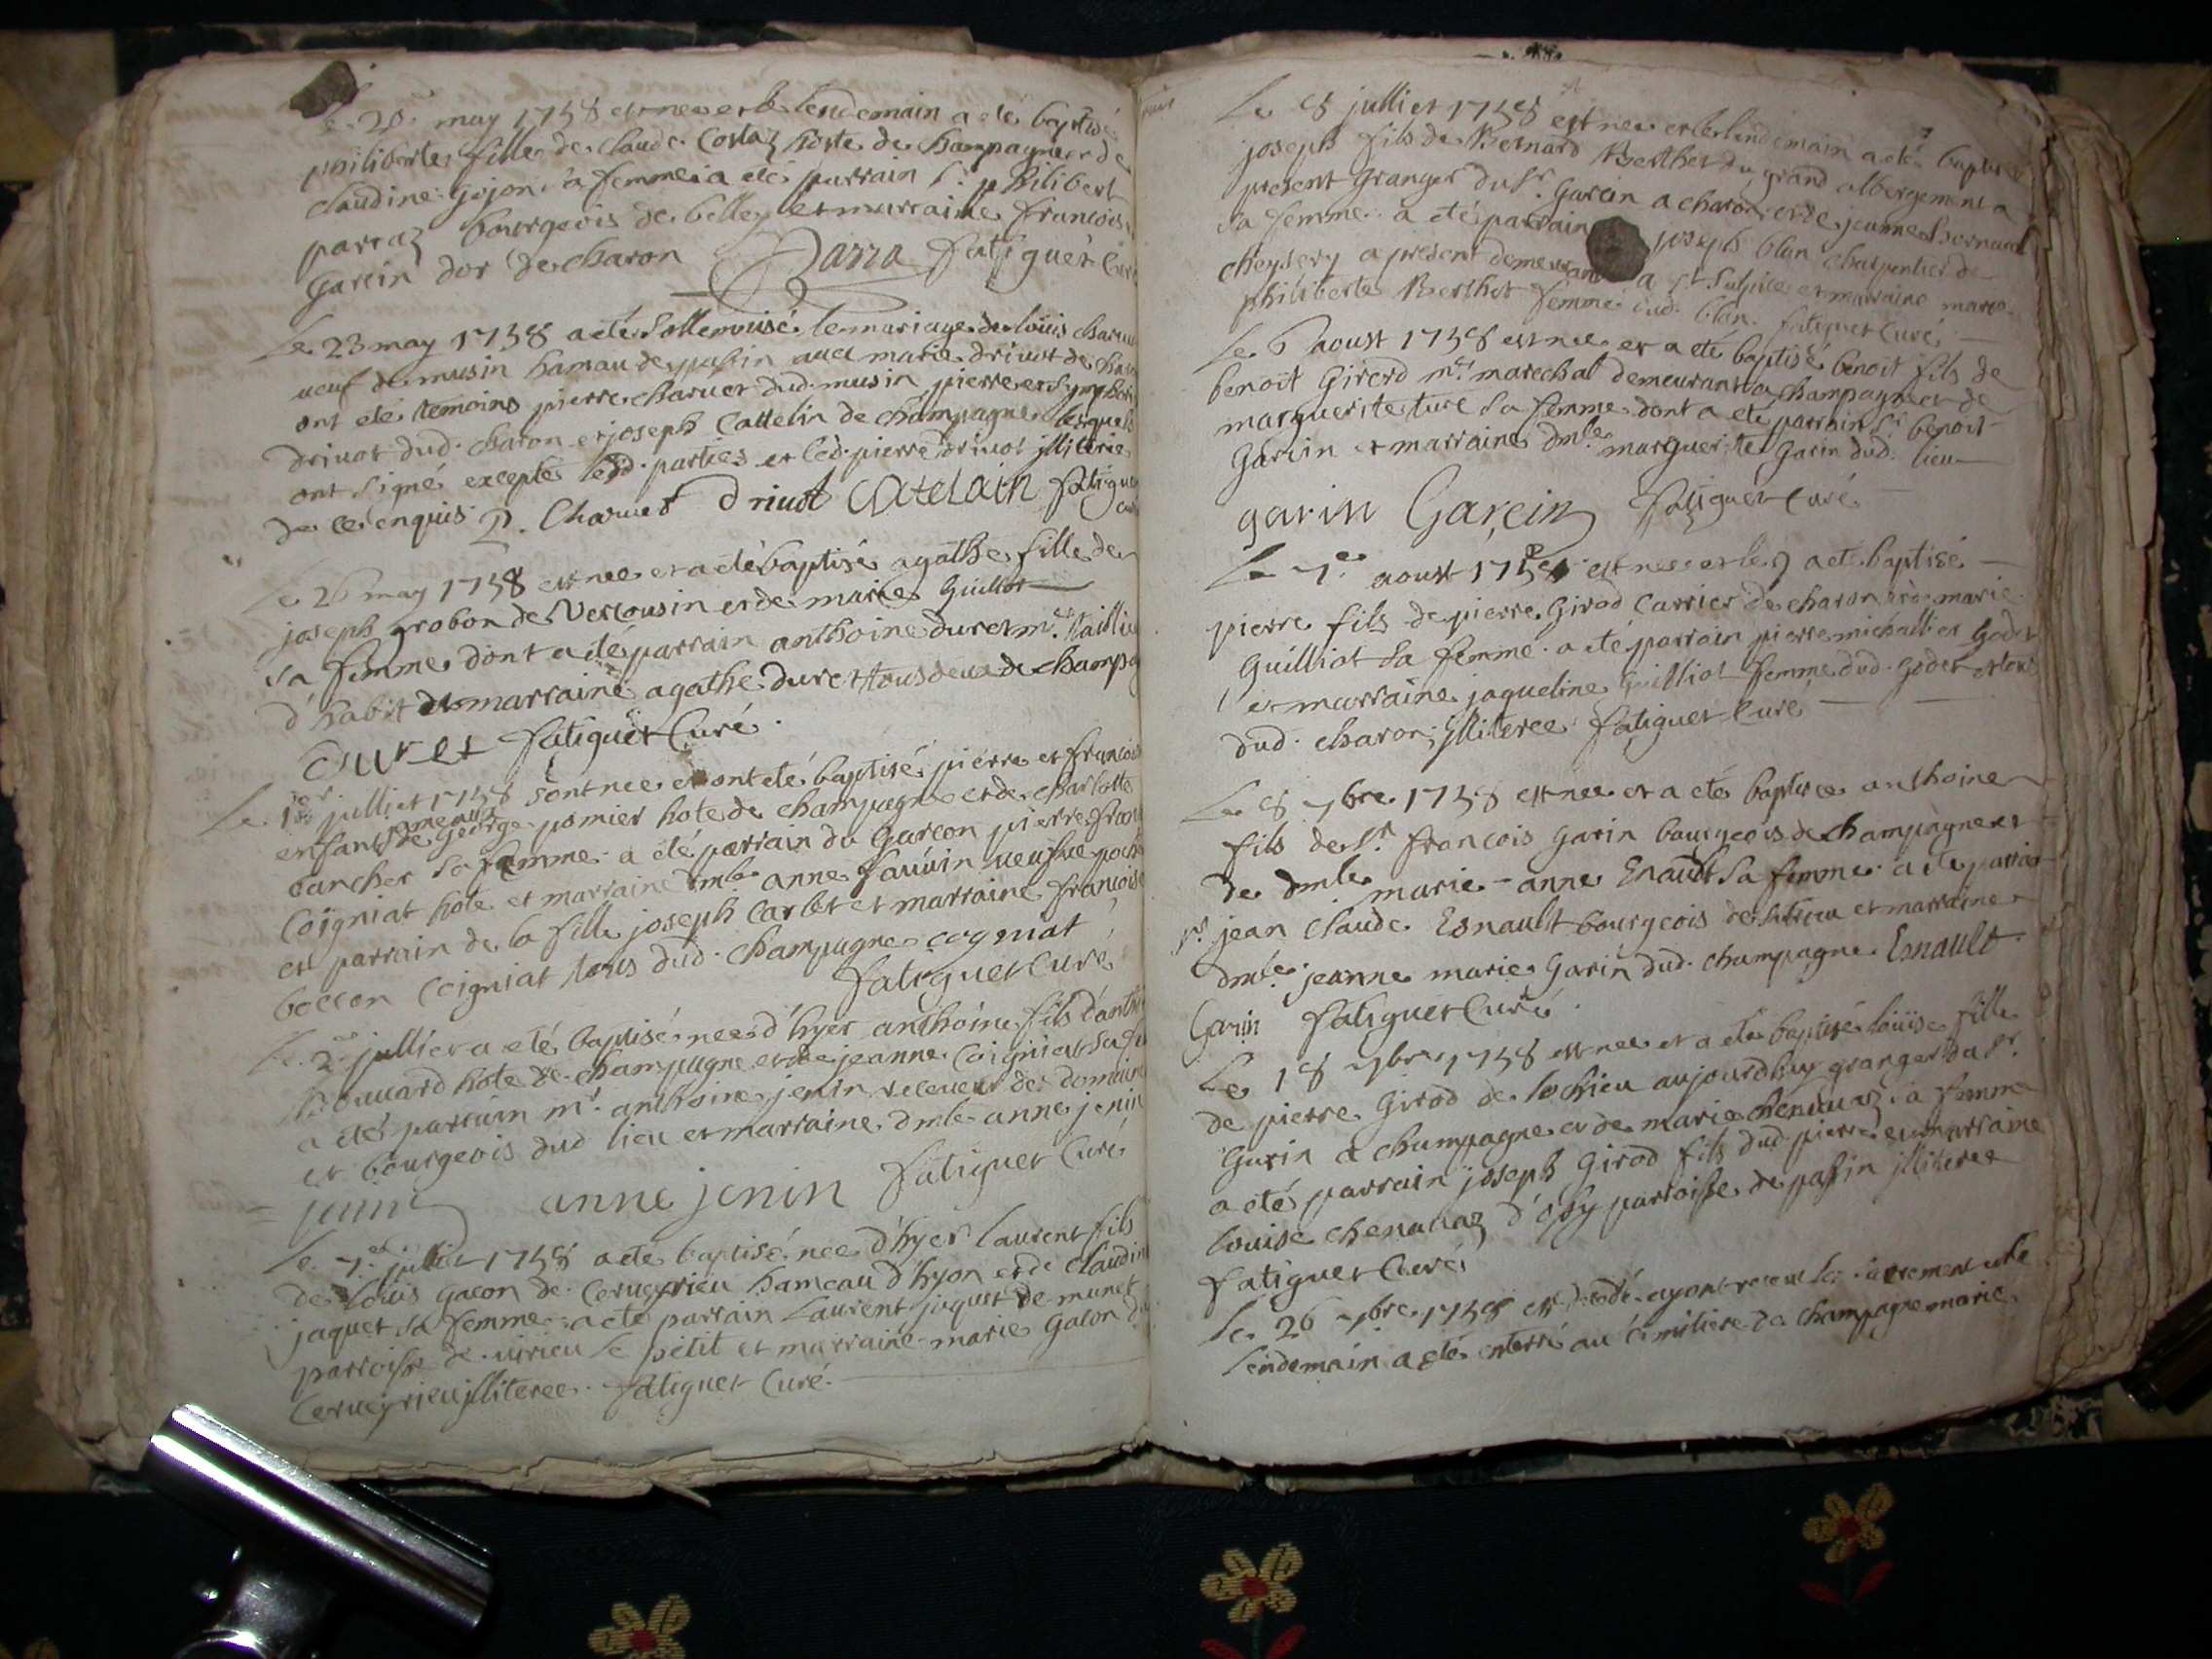 Le 20e may 1758 est nee et le lendemain a eté baptisé
philiberte fille de Claude Costaz hoste de Champagne et de
Claudine Gojon sa femme a eté parrain Sr philibert
parraz bourgeois de belley et marraine francois
Garcin dor de charon Parra fatiguet Curé
Le 23 may 1758 a eté Sollemnisé le mariage de loüis charuet
ueuf de musin hameau de passin auec marie driuot de charon
ont eté temoins pierre charuet dud. musin pierre et Symphor
driuot dud. charon et joseph Cattelin de champagne lesquels
ont Signé exceptés lesd. parties et led. pierre driuot illiteré
de ce enquis P. Charuet Driuot Catelain fatiguet
Le 26 may 1758 est nee et a eté baptisé agathe fille de
joseph grobon de Vercousin et de marie Guillot
sa femme dont a eté parrain anthoine duret me. tailleur
d'habit et marraine agathe duret tous deux de champag
Duret fatiguet Curé.
Le 1er julliet 1758 sont nee et ont eté baptisé pierre et francoise
jumeaux
enfans de George pomier hote de champagne et de charlotte
cancher sa femme a eté parrain du Garcon pierre fran
Coigniat hote et marraine dmlle anne fauuin ueufue poch
et parrain de la fille joseph Carlet et marraine francoise
boccon Coigniat tous dud. champagne cogniat
fatiguet Curé
Le 2e julliet a eté baptisé nee d'hyer anthoine fils d'anth
Bouuard hote de champagne et de jeanne Coigniat sa fe
a eté parrain mr. anthoine jenin receueur des domaine
et bourgeois dud lieu et marraine dmlle anne jenin
jenin anne jenin fatiguet Curé
Le 7e julliet 1758 a eté baptisé nee d'hyer laurent fils
de loüis Gacon de Cerueyrieu hameau d'hyon et de Claudin
jaquet sa femme a eté parrain Laurent jaquet de munet
parroisse de uirieu le petit et marraine marie Gacon d
Cerueyrieu illiteree. fatiguet Curé.
Le 8 julliet 1758 est nee et le lendemain a eté baptisé
joseph fils de Bernard Berthet du grand albergement a
present Granger du Sr. Garcin a charon et de jeanne bernard
sa femme a eté parrain joseph blan charpentier de
cheysery a present demeurant a St Sulpice et marraine marie
philiberte Berthet femme dud. blan. fatiguet Curé
Le 6 aoust 1758 est nee et a eté baptisé benoit fils de
benoit Girerd me marechal demeurant a champagne et de
marguerite ture sa femme dont a eté parrain Sr benoit
Garin et marraine dmlle marguerite Garin dud. lieu
garin Garcin fatiguet Curé
Le 7e aoust 1758 est nee et le 9 a eté baptisé
pierre fils de pierre Girod Carrier de charon et de marie
Guilliot sa femme a eté parrain pierre michallet Godet
et marraine jaqueline Guilliot femme dud. Godet et tous
dud. charon illiteree fatiguet Curé
Le 8 7bre 1758 est nee et a eté baptisee anthoine
fils de Sr. francois Garin bourgeois de champagne et
de dmlle marie-anne Enault sa femme a eté parrain
Sr. jean Claude Esnault bourgeois de et marraine
dmlle. jeanne marie Garin dud. champagne Esnault
Garin fatiguet Curé.
Le 18 7bre 1758 est nee et a eté baptisé loüise fille
de pierre Girod de lochieu aujourdhuy granger du Sr.
Garin a champagne et de marie chenauaz sa femme
a eté parrain joseph Girod fils dud. pierre et marraine
louise chenauaz d'ossy parroisse de passin illiteree
fatiguet Curé
Le 26 7bre 1758 est decedé ayant receut les sacrement et le
lendemain a eté enterré au cimitiere de champagne marie